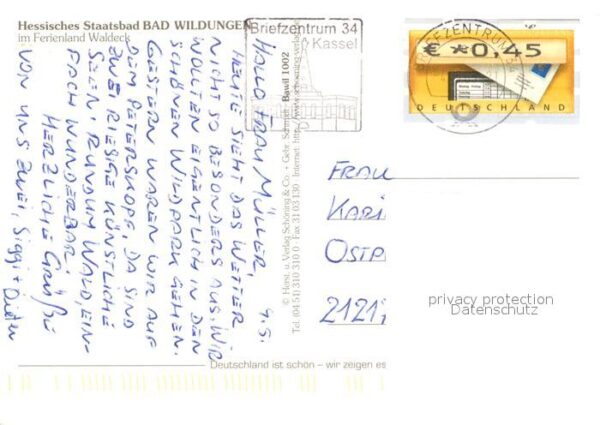 Hessisches Staatsbad BAD WILDUNGEN
im Ferienland Waldeck
Briefzentrum 34
Kassel
BRIEFZENTRUM 34
€ *0,45
DEUTSCHLAND
9.5.
HALLO FRAU MÜLLER,
HEUTE SIEHT DAS WETTER
NICHT SO BESONDERS AUS. WIR
WOLLTEN EIGENTLICH IN DEN
SCHÖNEN WILDPARK GEHEN.
GESTERN WAREN WIR AUF
DEM PETERSKOPF, DA SIND
ZWEI RIESIGE KÜNSTLICHE
SEEN. RUNDUM WALD, EIN-
FACH WUNDERBAR.
HERZLICHE GRÜßE
VON UNS ZWEI, Siggi + Dieter
© Herst. u. Verlag Schöning & Co. · Gebr. Schmidt · Bawil 1002
Tel. (04 51) 310 310 0 · Fax 31 03 130 · Internet: http://www.schoening-verlag
FRAU
KARI
OSTP
2121
privacy protection
Datenschutz
Deutschland ist schön – wir zeigen es